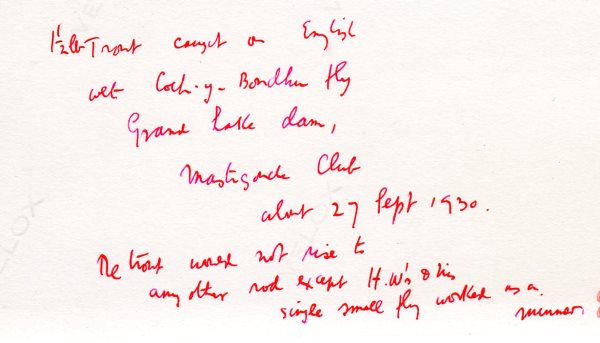 1½ lb Trout caught on English
wet Coch-y-Bondhu fly
Grand Lake dam,
Mastigouche Club
about 27 Sept 1930.
The trout would not rise to
any other rod except H.W's & his
single small fly worked as a
minnow.
VELOX